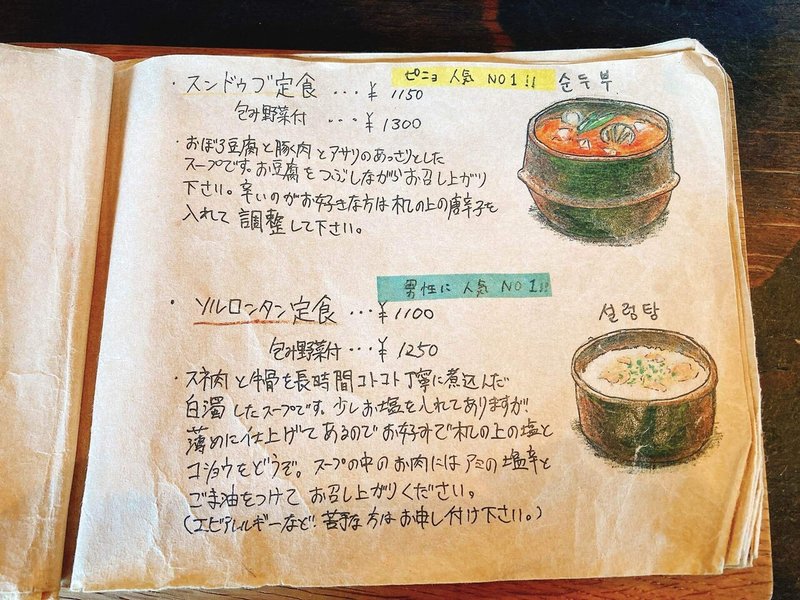 ピニョ 人気 NO1!!
・スンドゥブ定食 ・・・¥1150
순두부
包み野菜付 ・・・¥1300
・おぼろ豆腐と豚肉とアサリのあっさりとした
スープです。お豆腐をつぶしながらお召し上がり
下さい。辛いのがお好きな方は机の上の唐辛子を
入れて調整して下さい。
男性に 人気 NO1!!
・ソルロンタン定食 ・・・¥1100
설렁탕
包み野菜付・・・¥1250
・スネ肉と牛骨を長時間コトコト丁寧に煮込んだ
白濁したスープです。少しお塩を入れてありますが
薄めに仕上げてあるのでお好みで机の上の塩と
コショウをどうぞ。スープの中のお肉にはアミの塩辛と
ごま油をつけてお召し上がりください。
(エビアレルギーなど苦手な方はお申し付け下さい。)